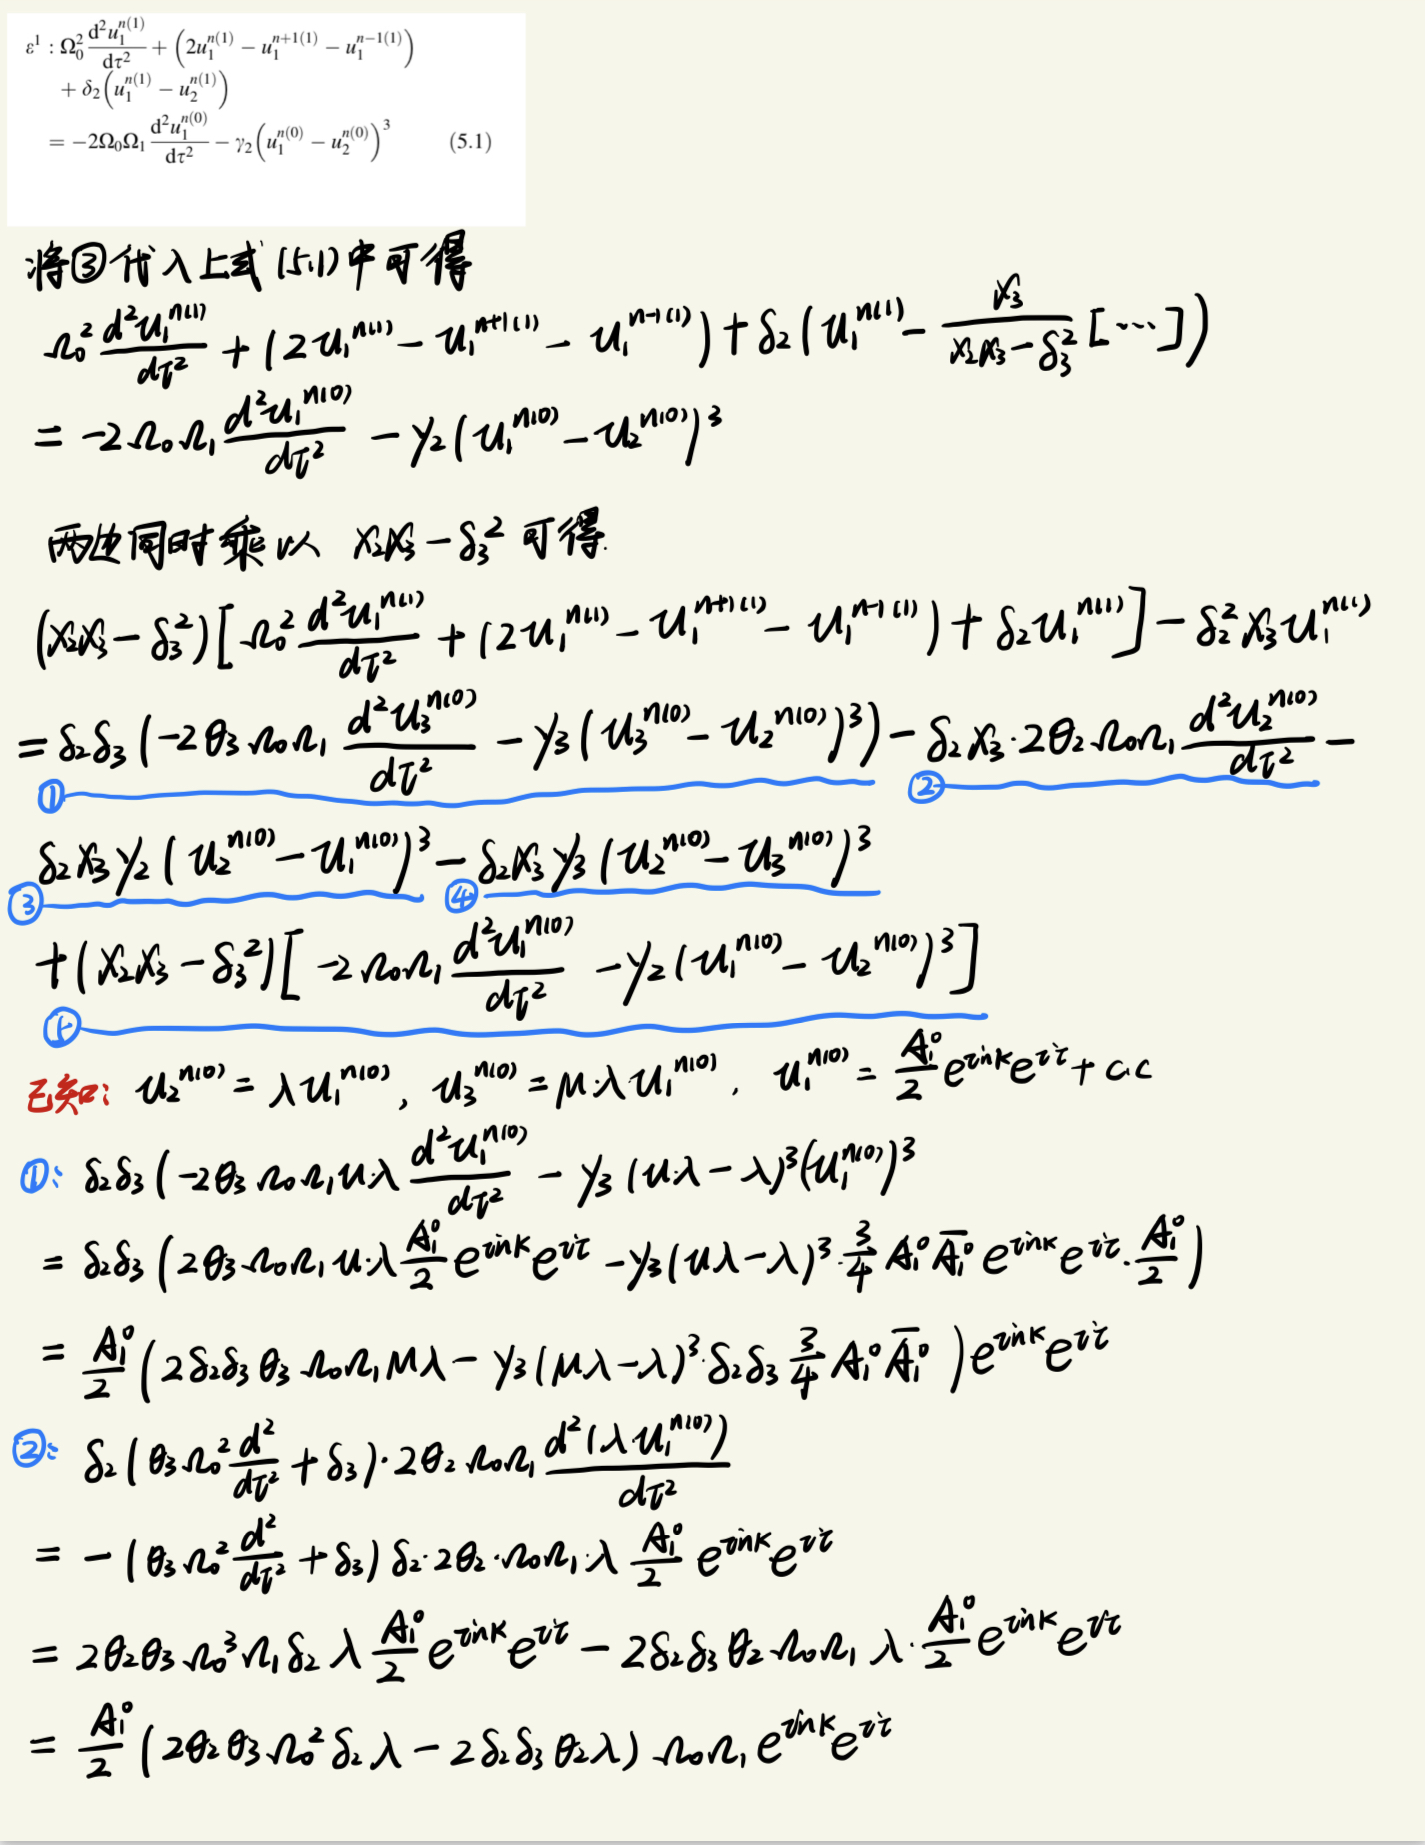 ε¹ : Ω₀² d²u₁ⁿ⁽¹⁾/dτ² + (2u₁ⁿ⁽¹⁾ − u₁ⁿ⁺¹⁽¹⁾ − u₁ⁿ⁻¹⁽¹⁾)
+ δ₂(u₁ⁿ⁽¹⁾ − u₂ⁿ⁽¹⁾)
= −2Ω₀Ω₁ d²u₁ⁿ⁽⁰⁾/dτ² − γ₂(u₁ⁿ⁽⁰⁾ − u₂ⁿ⁽⁰⁾)³ (5.1)
将③代入上式(5.1)中可得
Ω₀² d²u₁ⁿ⁽¹⁾/dτ² + (2u₁ⁿ⁽¹⁾ − u₁ⁿ⁺¹⁽¹⁾ − u₁ⁿ⁻¹⁽¹⁾) + δ₂(u₁ⁿ⁽¹⁾ − x₃/(x₂x₃ − δ₃²) [⋯])
= −2Ω₀Ω₁ d²u₁ⁿ⁽⁰⁾/dτ² − γ₂(u₁ⁿ⁽⁰⁾ − u₂ⁿ⁽⁰⁾)³
两边同时乘以 x₂x₃ − δ₃² 可得.
(x₂x₃ − δ₃²)[Ω₀² d²u₁ⁿ⁽¹⁾/dτ² + (2u₁ⁿ⁽¹⁾ − u₁ⁿ⁺¹⁽¹⁾ − u₁ⁿ⁻¹⁽¹⁾) + δ₂u₁ⁿ⁽¹⁾] − δ₂²x₃u₁ⁿ⁽¹⁾
= δ₂δ₃(−2θ₃Ω₀Ω₁ d²u₃ⁿ⁽⁰⁾/dτ² − γ₃(u₃ⁿ⁽⁰⁾ − u₂ⁿ⁽⁰⁾)³) − δ₂x₃·2θ₂Ω₀Ω₁ d²u₂ⁿ⁽⁰⁾/dτ² −
① ②
δ₂x₃γ₂(u₂ⁿ⁽⁰⁾ − u₁ⁿ⁽⁰⁾)³ − δ₂x₃γ₃(u₂ⁿ⁽⁰⁾ − u₃ⁿ⁽⁰⁾)³
③ ④
+ (x₂x₃ − δ₃²)[−2Ω₀Ω₁ d²u₁ⁿ⁽⁰⁾/dτ² − γ₂(u₁ⁿ⁽⁰⁾ − u₂ⁿ⁽⁰⁾)³]
⑤
已知: u₂ⁿ⁽⁰⁾ = λu₁ⁿ⁽⁰⁾, u₃ⁿ⁽⁰⁾ = μ·λ·u₁ⁿ⁽⁰⁾, u₁ⁿ⁽⁰⁾ = A₁⁰/2 e^{ink}e^{iτ} + c.c
①: δ₂δ₃(−2θ₃Ω₀Ω₁μ·λ d²u₁ⁿ⁽⁰⁾/dτ² − γ₃(μ·λ − λ)³(u₁ⁿ⁽⁰⁾)³
= δ₂δ₃(2θ₃Ω₀Ω₁μ·λ A₁⁰/2 e^{ink}e^{iτ} − γ₃(μλ − λ)³·3/4 A₁⁰Ā₁⁰ e^{ink}e^{iτ}·A₁⁰/2)
= A₁⁰/2 (2δ₂δ₃θ₃Ω₀Ω₁μλ − γ₃(μλ − λ)³·δ₂δ₃ 3/4 A₁⁰Ā₁⁰)e^{ink}e^{iτ}
②: δ₂(θ₃Ω₀² d²/dτ² + δ₃)·2θ₂Ω₀Ω₁ d²(λ·u₁ⁿ⁽⁰⁾)/dτ²
= −(θ₃Ω₀² d²/dτ² + δ₃)δ₂·2θ₂·Ω₀Ω₁·λ A₁⁰/2 e^{ink}e^{iτ}
= 2θ₂θ₃Ω₀³Ω₁δ₂λ A₁⁰/2 e^{ink}e^{iτ} − 2δ₂δ₃θ₂Ω₀Ω₁λ·A₁⁰/2 e^{ink}e^{iτ}
= A₁⁰/2 (2θ₂θ₃Ω₀²δ₂λ − 2δ₂δ₃θ₂λ)Ω₀Ω₁e^{ink}e^{iτ}